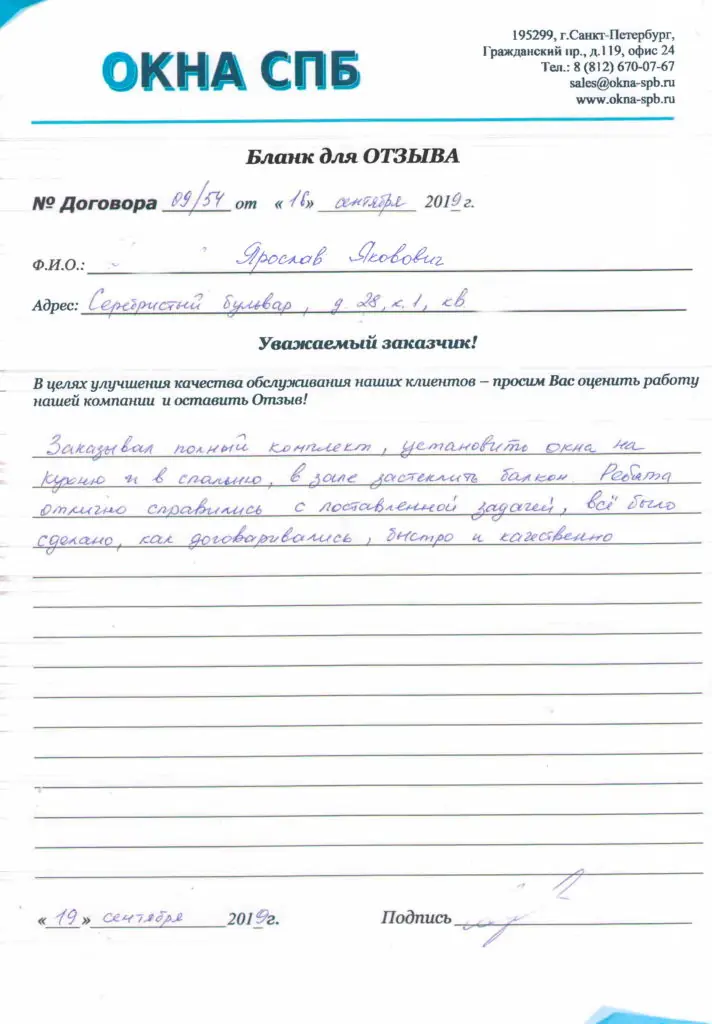 ОКНА СПБ
195299, г.Санкт-Петербург,
Гражданский пр., д.119, офис 24
Тел.: 8 (812) 670-07-67
sales@okna-spb.ru
www.okna-spb.ru
Бланк для ОТЗЫВА
№ Договора 09/54 от «16» сентября 2019г.
Ф.И.О.: Ярослав Яковович
Адрес: Серебристый бульвар, д. 28, к. 1, кв
Уважаемый заказчик!
В целях улучшения качества обслуживания наших клиентов – просим Вас оценить работу
нашей компании и оставить Отзыв!
Заказывал полный комплект, установить окна на
кухню и в спальню, в зале застеклить балкон. Ребята
отлично справились с поставленной задачей, всё было
сделано, как договаривались, быстро и качественно
«19» сентября 2019г. Подпись